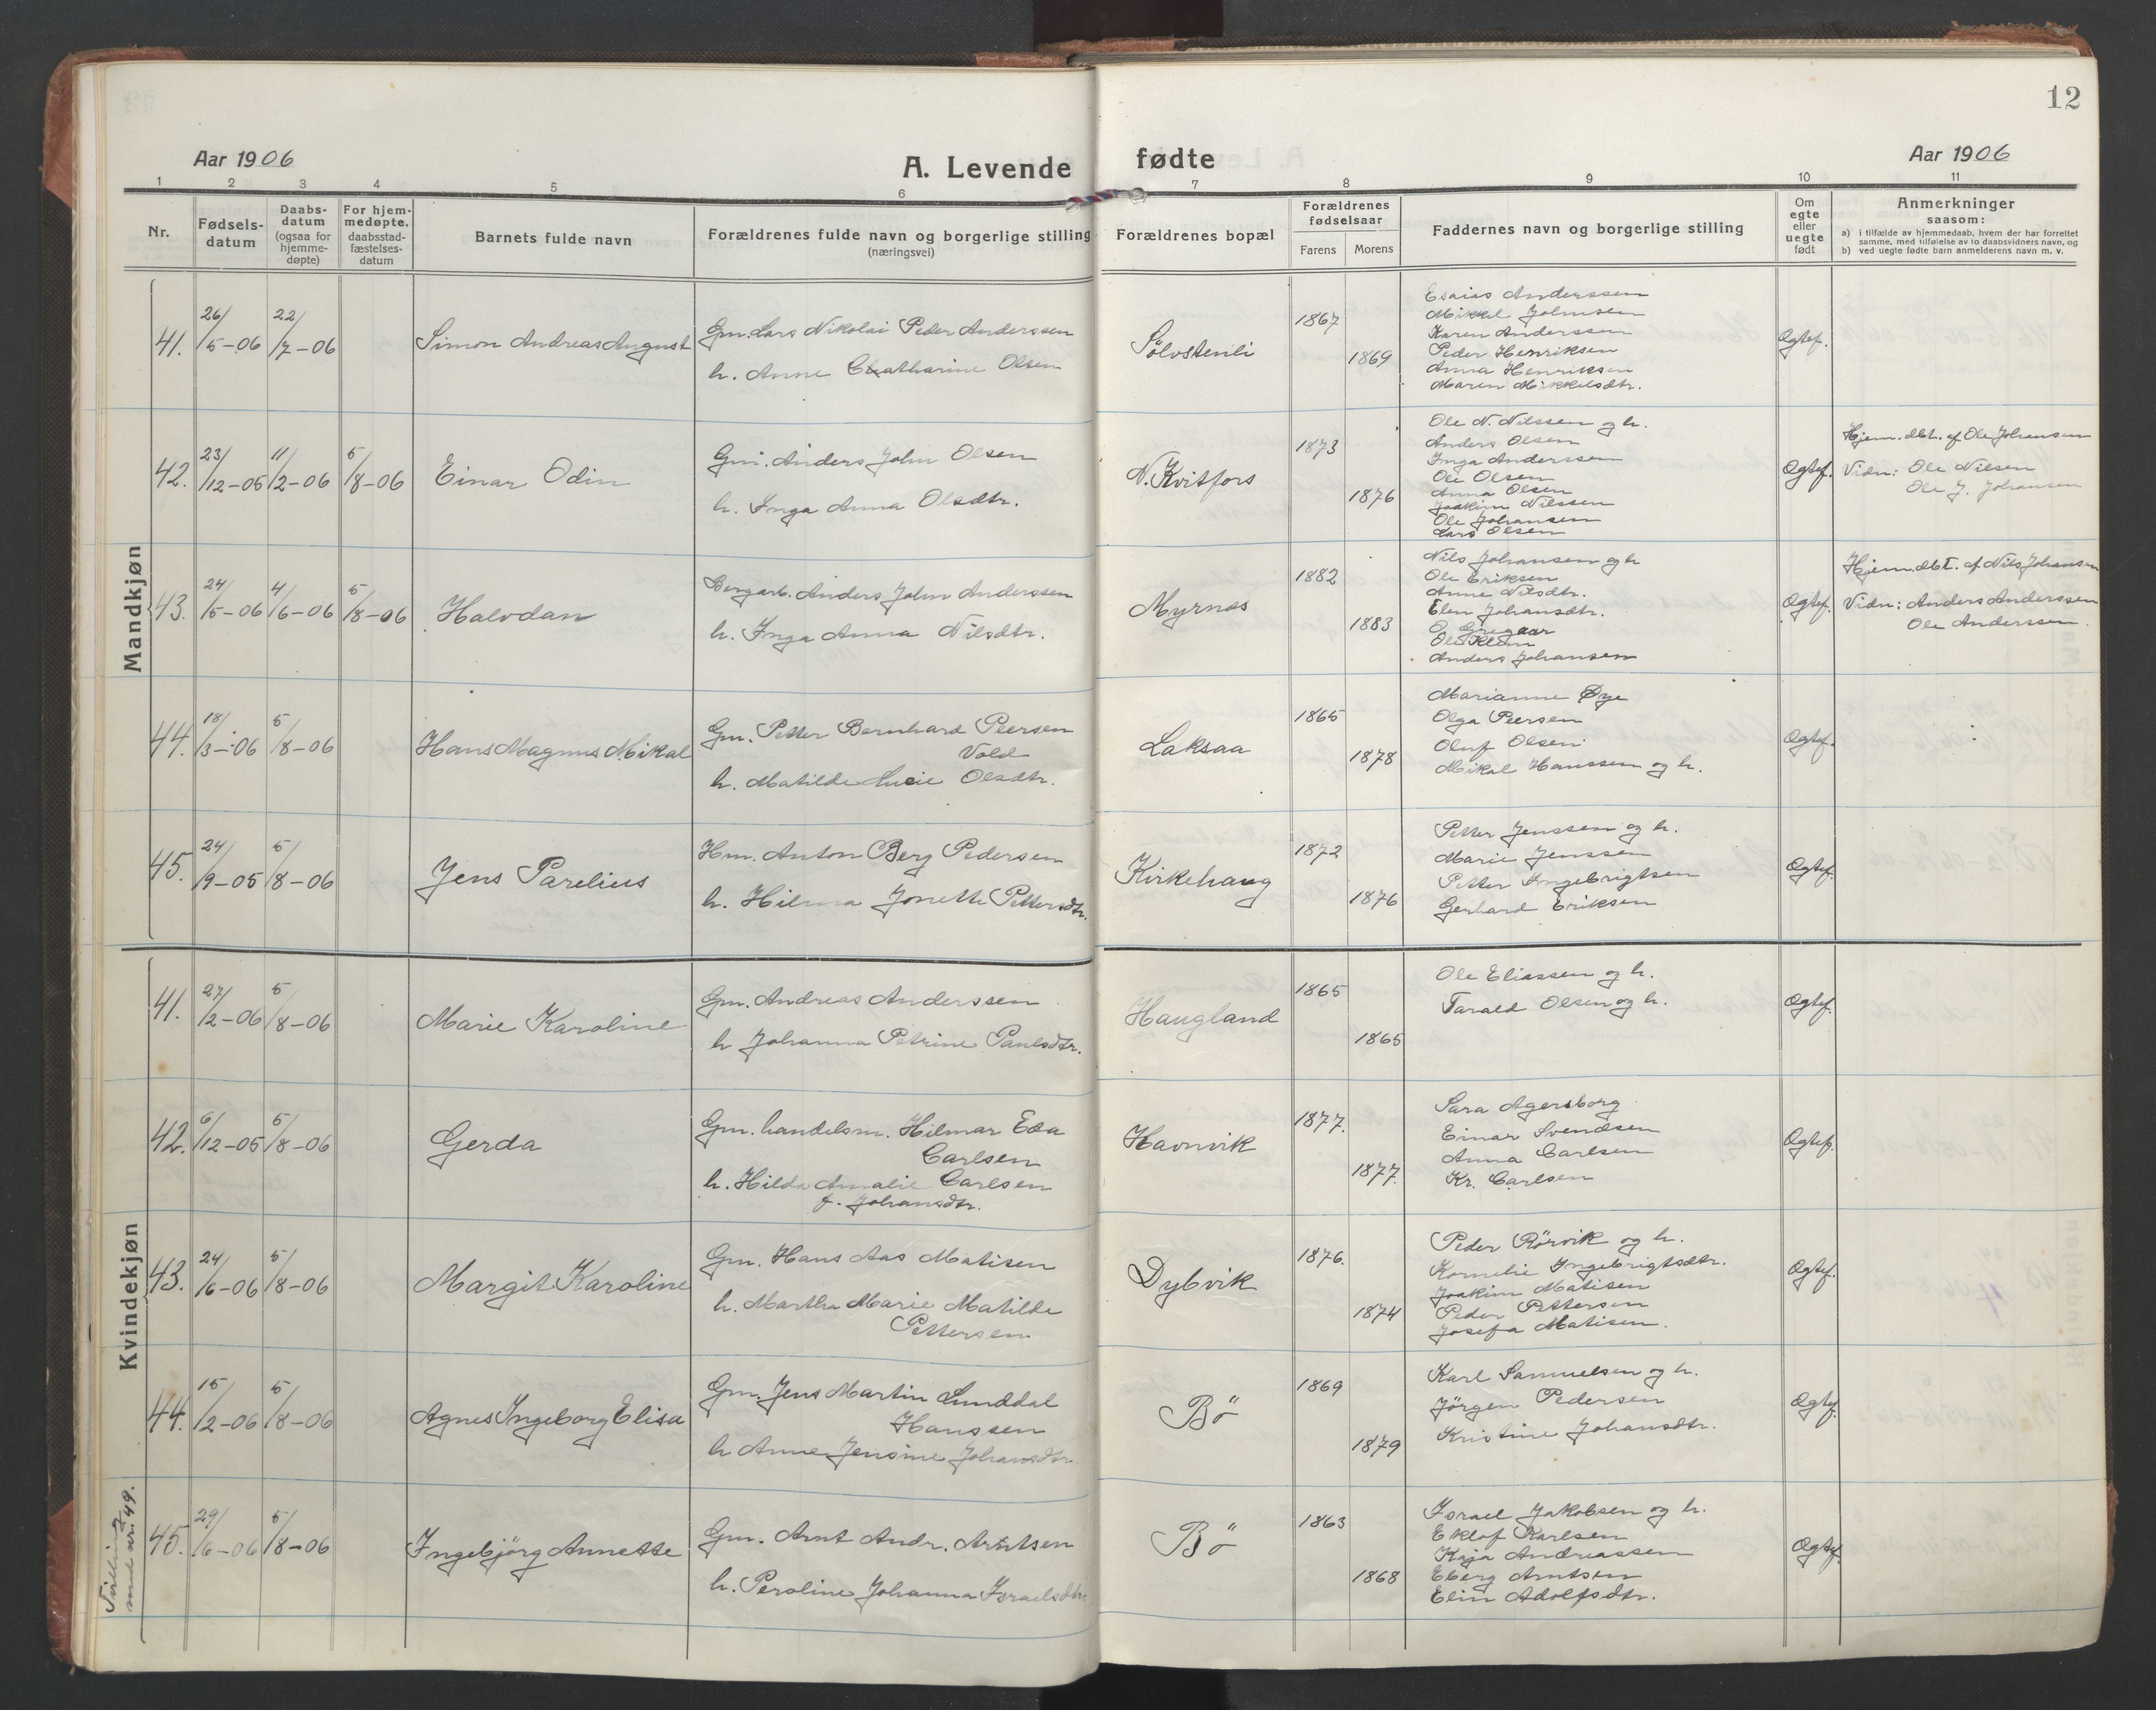 12
Aar 1906
A. Levende fødte
Aar 1906
1 2 3 4 5 6 7 8 9 10 11
Nr.
Fødsels-
datum
Daabs-
datum
(ogsaa for
hjemme-
døpte)
For hjem-
medøpte,
daabsstad-
fæstelses-
datum
Barnets fulde navn
Forældrenes fulde navn og borgerlige stilling
(næringsvei)
Forældrenes bopæl
Forældrenes
fødselsaar
Farens Morens
Faddernes navn og borgerlige stilling
Om
egte
eller
uegte
født
Anmerkninger
saasom:
a) i tilfælde av hjemmedaab, hvem der har forrettet
samme, med tilføielse av to daabsvidners navn, og
b) ved uegte fødte barn anmelderens navn m. v.
Mandkjøn
41. 26/5-06 22/7-06
Simon Andreas August
Gm. Lars Nikolai Peder Anderssen
h. Anne Catharine Olsen
Sölvstenli
1867
1869
Esaias Anderssen
Mikkel Johnsen
Karen Anderssen
Peder Henriksen
Anna Henriksen
Maren Mikkelsdtr.
Ægtef.
42. 23/12-05 11/2-06 5/8-06
Einar Odin
Gm. Anders John Olsen
h. Inga Anna Olsdtr.
N. Kvitfors
1873
1876
Ole N. Nilssen og h.
Anders Olsen
Inga Anderssen
Ole Olsen
Anna Olsen
Joakim Nilssen
Ole Johansen
Lars Olsen
Ægtef.
Hjem. dbt. af Ole Johansen
Vidn: Ole Nilsen
Ole J. Johansen
43. 24/5-06 4/6-06 5/8-06
Halvdan
Bergarb. Anders John Anderssen
h. Inga Anna Nilsdtr.
Myrnes
1882
1883
Nils Johansen og h
Ole Eriksen
Anne Nilsdtr.
Elen Johansdtr.
O. Gregaar
Ole Klem
Anders Johansen
Ægtef.
Hjem. dbt. af Nils Johansen
Vidn: Anders Anderssen
Ole Anderssen.
44. 18/3-06 5/8-06
Hans Magnus Mikal
Gm. Petter Bernhard Peersen
Vold
h. Matilde Lucie Olsdtr.
Laksaa
1865
1878
Marianne Øye
Olga Peersen
Oluf Olsen
Mikal Hanssen og h.
Ægtef.
45. 24/9-05 5/8-06
Jens Parelius
Hm. Anton Berg Pedersen
h. Hilma Jonette Pettersdtr.
Kirkehaug
1872
1876
Petter Jenssen og h.
Marie Jenssen
Petter Ingebrigtsen
Gerhard Eriksen
Ægtef.
Kvindekjøn
41. 27/2-06 5/8-06
Marie Karoline
Gm. Andreas Anderssen
h Johanna Petrine Paulsdtr.
Haugland
1865
1865
Ole Eliassen og h.
Tarald Olsen og h.
Ægtef.
42. 6/12-05 5/8-06
Gerda
Gm. handelsm. Hilmar Eda
Carlsen
h. Hilda Amalie Carlsen
f. Johansdtr.
Havnvik
1877.
1877.
Sara Agersborg
Einar Svendsen
Anna Carlsen
Kr. Carlsen
Ægtef.
43. 24/6-06 5/8-06
Margit Karoline
Gm. Hans Aas Matisen
h. Martha Marie Matilde
Pettersen
Dybvik
1876.
1874
Peder Rörvik og h.
Kornelie Ingebrigtsdtr.
Joakim Matisen
Peder Pettersen
Josefa Matisen.
Ægtef.
44. 15/2-06 5/8-06
Agnes Ingeborg Elisa
Gm. Jens Martin Lunddal
Hanssen
h Anne Jensine Johansdtr.
Bö
1869
1879
Karl Samuelsen og h.
Jörgen Pedersen
Kristine Johansdtr.
Ægtef.
Tvilling
med nr. 49.
45. 29/6-06 5/8-06
Ingebjörg Annette
Gm. Arnt Andr. Arntsen
h. Peroline Johanna Israelsdtr.
Bö
1863
1868
Israel Jakobsen og h.
Eklof Karlsen
Kaja Andreassen
Eberg Arntsen
Elin Adolfsdtr.
Ægtef.